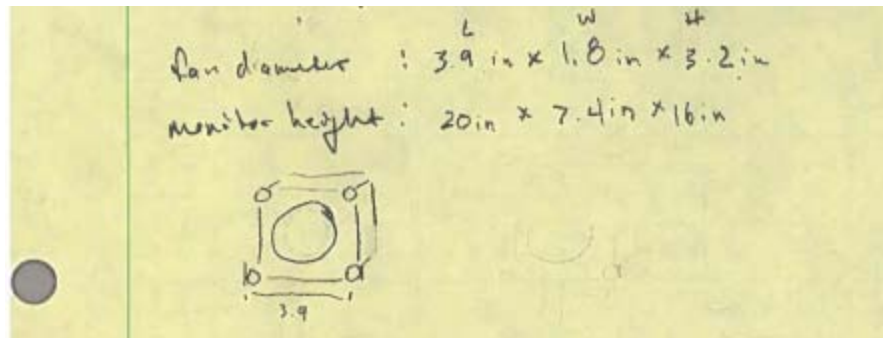 L W H
fan diameter : 3.9 in x 1.8 in x 3.2 in
monitor height : 20in x 7.4in x 16in
3.9